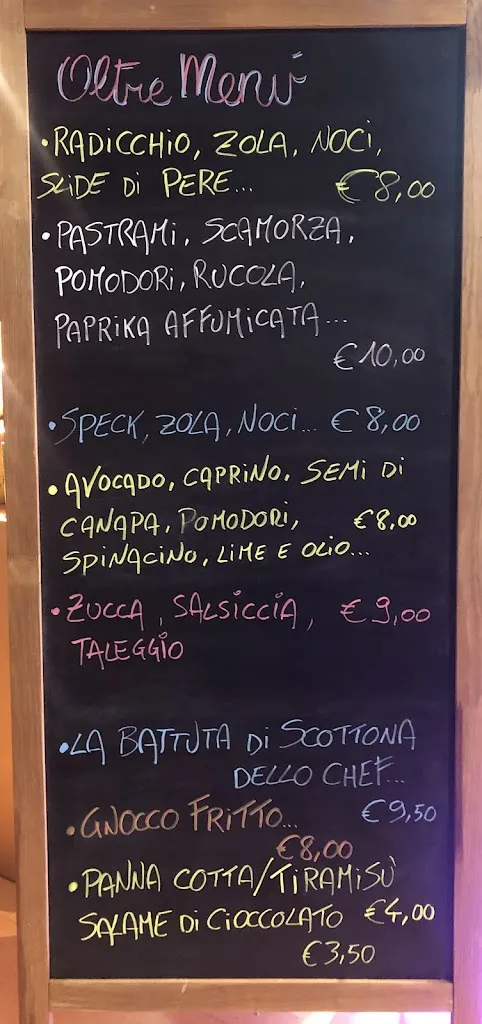 Oltre Menù
• RADICCHIO, ZOLA, NOCI,
SLIDE DI PERE... €8,00
• PASTRAMI, SCAMORZA,
POMODORI, RUCOLA,
PAPRIKA AFFUMICATA...
€10,00
• SPECK, ZOLA, NOCI... €8,00
• AVOCADO, CAPRINO, SEMI DI
CANAPA, POMODORI, €8,00
SPINACINO, LIME E OLIO...
• ZUCCA, SALSICCIA, €9,00
TALEGGIO
• LA BATTUTA DI SCOTTONA
DELLO CHEF...
€9,50
• GNOCCO FRITTO...
€8,00
• PANNA COTTA/TIRAMISÙ
SALAME DI CIOCCOLATO €4,00
€3,50